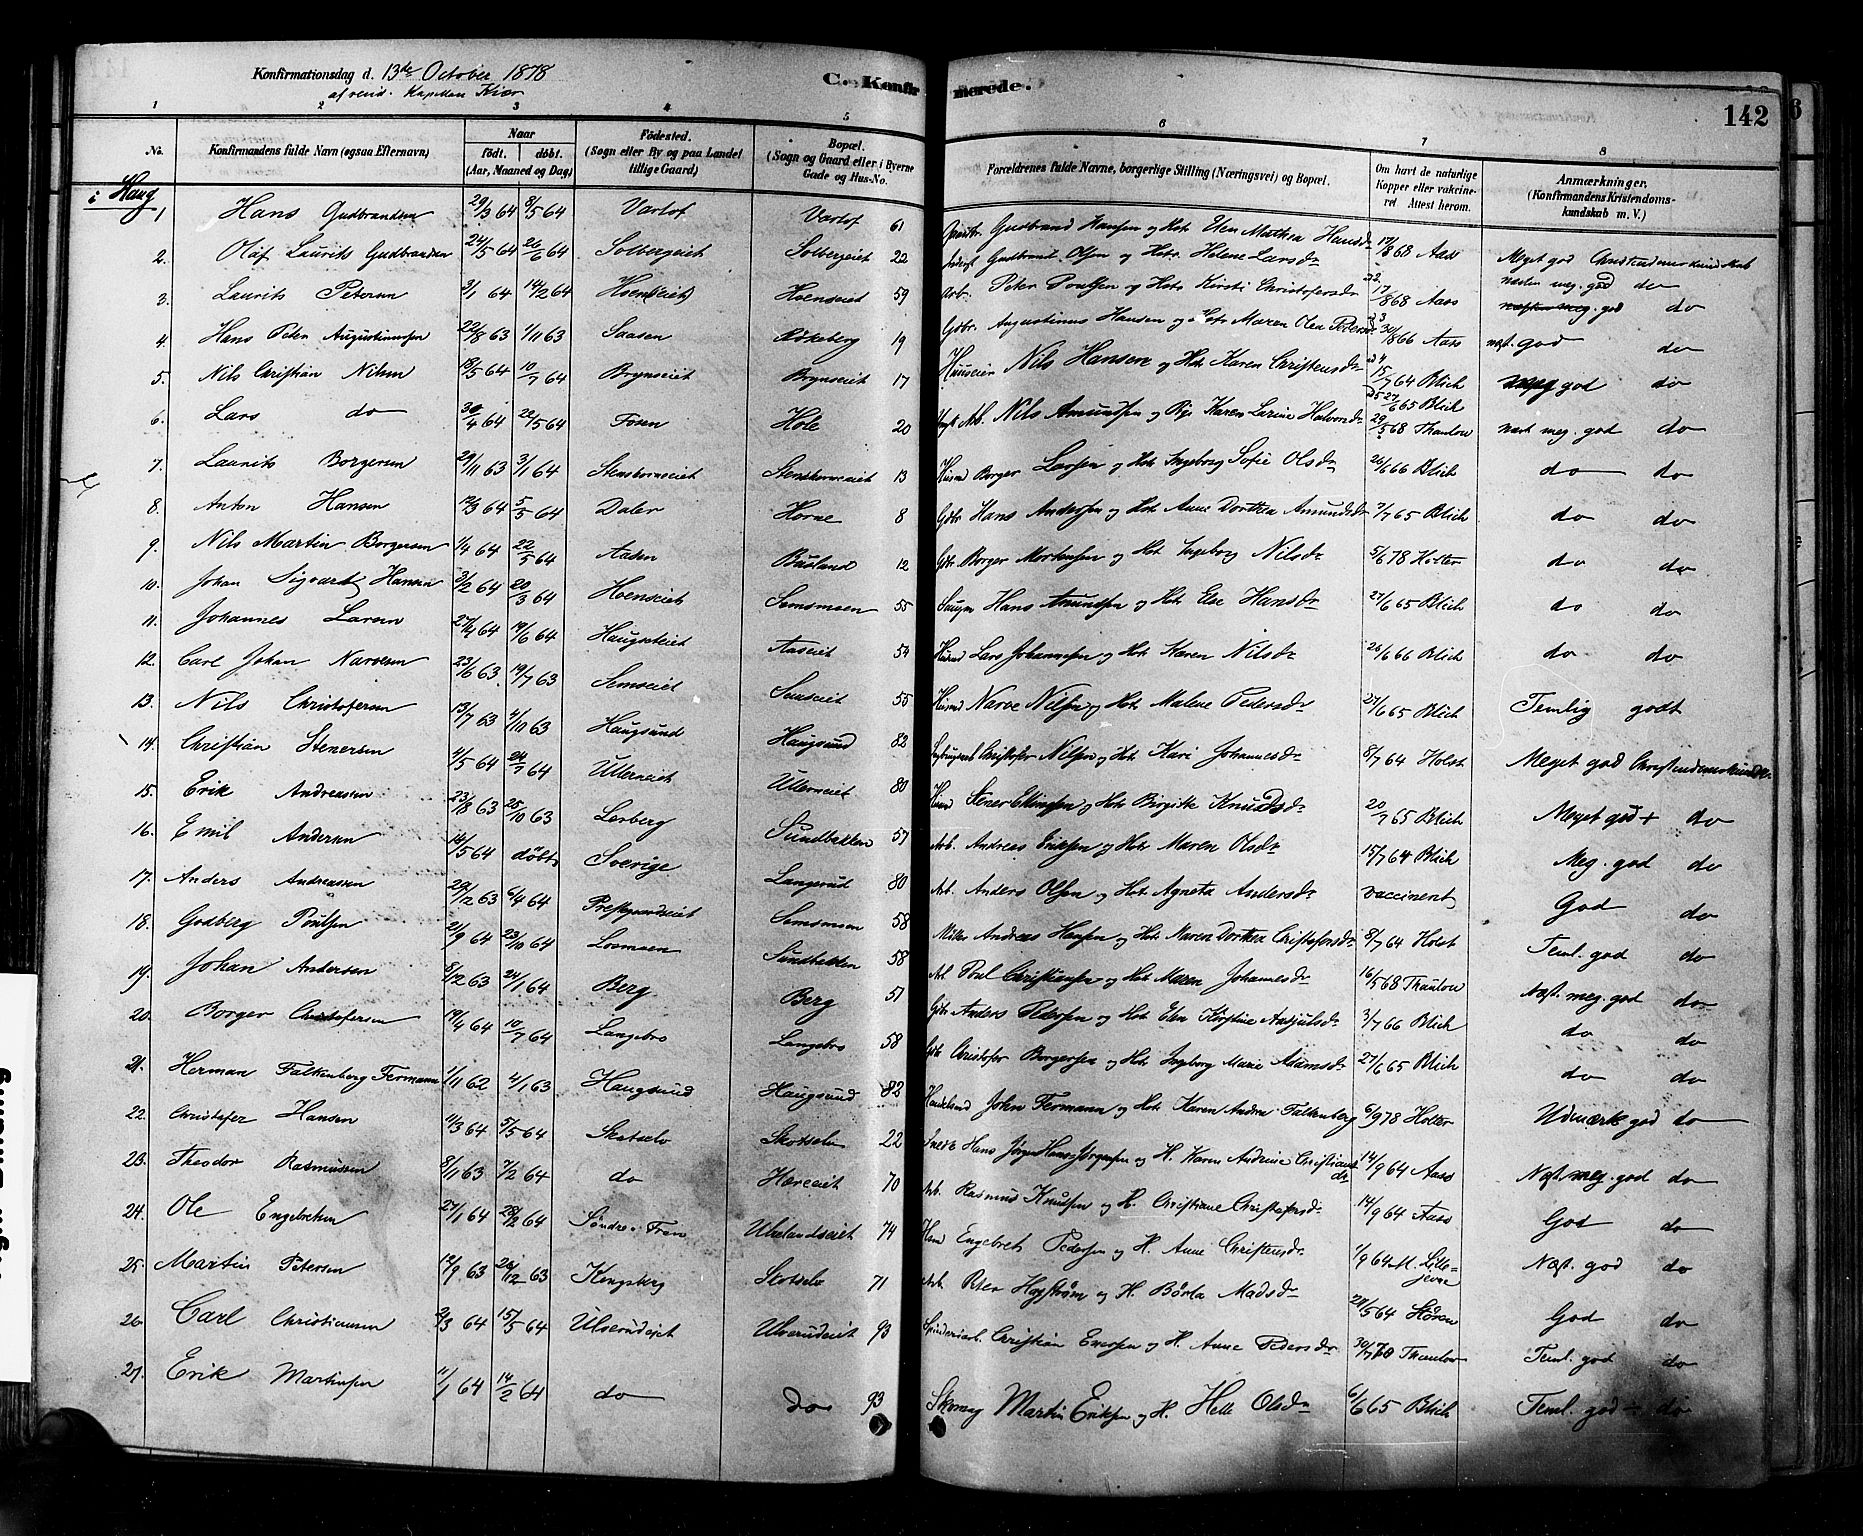 Konfirmationsdag d. 13de October 1878
C. Konfirmerede.
142
1 2 3 4 5 6 7 8
No. Konfirmandens fulde Navn (ogsaa Efternavn) Naar født. døbt. (Aar, Maaned og Dag) Fødested. (Sogn eller By og paa Landet tillige Gaard) Bopæl. (Sogn og Gaard eller i Byerne Gade og Hus-No. Forældrenes fulde Navne, borgerlige Stilling (Næringsvei) og Bopæl. Om havt de naturlige Kopper eller vakcineret Attest herom. Anmærkninger. (Konfirmandens Kristendomskundskab m. V.)
i Haug
1 Hans Gudbrandsen 29/3 64 8/5 64 Varlof Varlof 61 Gudbrand Hansen og Hst. Elen Mathea Hansdr 17/8 68 Aass Meget god Christendomskundskab
2. Olaf Laurits Gudbrandsen 24/5 64 26/6 64 Solbergeiet Solbergeiet 22 Gudbrand Olsen og Hst. Helene Larsdr næsten meg. god do
3. Laurits Petersen 3/1 64 14/2 64 Hoenseiet Hoenseiet 59 Arb. Peter Poulsen og Hst. Kirsti Christofersdr 17/8 68 Aass god do
4. Hans Peter Augustinussen 22/8 63 1/11 63 Saasen Røkeberg 19 Gdbr. Augustinus Hansen og Hst. Maren Olea Pedersdr 30/8 66 Aass næst. god do
5. Nils Christian Nilsen 18/5 64 10/7 64 Brynseiet Brynseiet 17 Huuseier Nils Hansen og Hst. Karen Christensdr 15/7 64 Blich god do
6. Lars do 30/4 64 22/5 64 Fosen Hole 20 Arb. Nils Amundsen og Karen Larine Halvorsdr 27/6 65 Blich 29/5 68 Thaulow næst meg. god do
7. Laurits Borgersen 29/11 63 3/1 64 Stenskorneiet Stenskorneiet 13 Husmd Borger Larsen og Hst. Ingeborg Sofie Olsdr 26/6 66 Blich do do
8. Anton Hansen 12/3 64 5/5 64 Daler Horne 8 Gdbr Hans Andersen og Hst. Anne Dorthea Amundsdr 7/7 65 Blich do do
9. Nils Martin Borgersen 1/4 64 22/5 64 Aasen Busland 12 Gdbr Borger Mortensen og Hst. Ingeborg Nilsdr 5/6 78 Holter do do
10. Johan Sigvart Hansen 3/2 64 20/3 64 Hoenseiet Semsmoen 55 Hans Amundsen og Hst. Else Hansdr 27/6 65 Blich do do
11. Johannes Larsen 27/4 64 19/6 64 Haugseiet Aaseiet 54 Husmd Lars Johannesen og Hst. Karen Nilsdr 26/6 66 Blich do do
12. Carl Johan Narvesen 23/6 63 19/7 63 Semseiet Semseiet 55 Husmd Narve Nilsen og Hst. Malene Pedersdr 27/6 65 Blich Temlig godt
13. Nils Christofersen 13/7 63 4/10 63 Haugsund Haugsund 82 Christofer Nilsen og Hst. Kari Johannesdr 8/7 64 Holst Meget god Christendomskundsk.
14. Christian Stenersen 4/5 64 24/7 64 Ullerneiet Ullerneiet 80 Husmd Stener Ellingsen og Hst. Birgitte Knudsdr 20/7 65 Blich Meget god + do
15. Erik Andreassen 23/8 63 25/10 63 Lerberg Sundbakken 57 Arb. Andreas Eriksen og Hst. Maren Olsdr 15/7 64 Blich Meg. god do
16. Emil Andersen 14/5 64 døbt Sverige Langerud 80 Arb. Anders Olsen og Hst. Agneta Andersdr vaccinert God do
17. Anders Andreassen 29/12 63 6/4 64 Prestegaardseiet Semsmoen 58 Andreas Hansen og Hst. Maren Dorthea Christofersdr 8/7 64 Holst Teml. god do
18. Godberg Poulsen 21/9 64 23/10 64 Losmoen Sundbakken 58 Poul Christiansen og Hst. Maren Johannesdr 16/5 68 Thaulow Næst. meg. god do
19. Johan Andersen 8/12 63 24/1 64 Berg Berg 51 Gdbr Anders Pedersen og Hst. Elen Kirstine Aasjulsdr 3/7 66 Blich do do
20. Borger Christofersen 19/4 64 10/7 64 Langebro Langebro 58 Gdbr Christofer Borgersen og Hst. Ingeborg Marie Adamsdr 27/6 65 Blich do do
21. Herman Falkenberg Fermann 1/11 62 4/1 63 Haugsund Haugsund 82 John Fermann og Hst. Karen Andrea Falkenberg 6/9 78 Holter Udmærk god do
22. Christofer Hansen 11/3 64 5/5 64 Skotselv Skotselv 22 Hans Jørgen Hans Jørgensen og H. Karen Andrine Christiansdr 14/9 64 Aass Næst. meg. god do
23. Theodor Rasmussen 8/11 63 7/2 64 do 70 Arb. Rasmus Knudsen og H. Christiane Christofersdr 14/9 64 Aass God do
24. Ole Engebretsen 27/1 64 28/2 64 Søndre Fron Ulvelandseiet 74 Engebret Pedersen og H. Anne Christensdr 1/9 64 M. Lillejevne Næst. god do
25. Martin Petersen 12/9 63 26/12 63 Kongsberg Skotselv 71 Arb. Peter Hagstrøm og H. Børta Madsdr 28/5 64 Støren God do
26. Carl Christiansen 2/3 64 15/5 64 Ulverudejet Ulverudeiet 93 Christian Eversen og H. Anne Pedersdr Thaulow Teml. god do
27. Erik Martinsen 11/1 64 14/2 64 do do 93 Skomag Martin Eriksen og H. Helle Olsdr 6/6 65 Blich Teml. god do